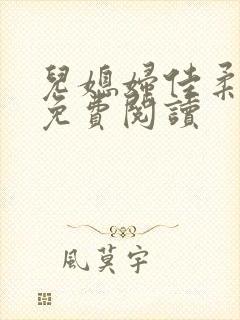 兒媳婦佳柔
免費閱讀
風莫宇